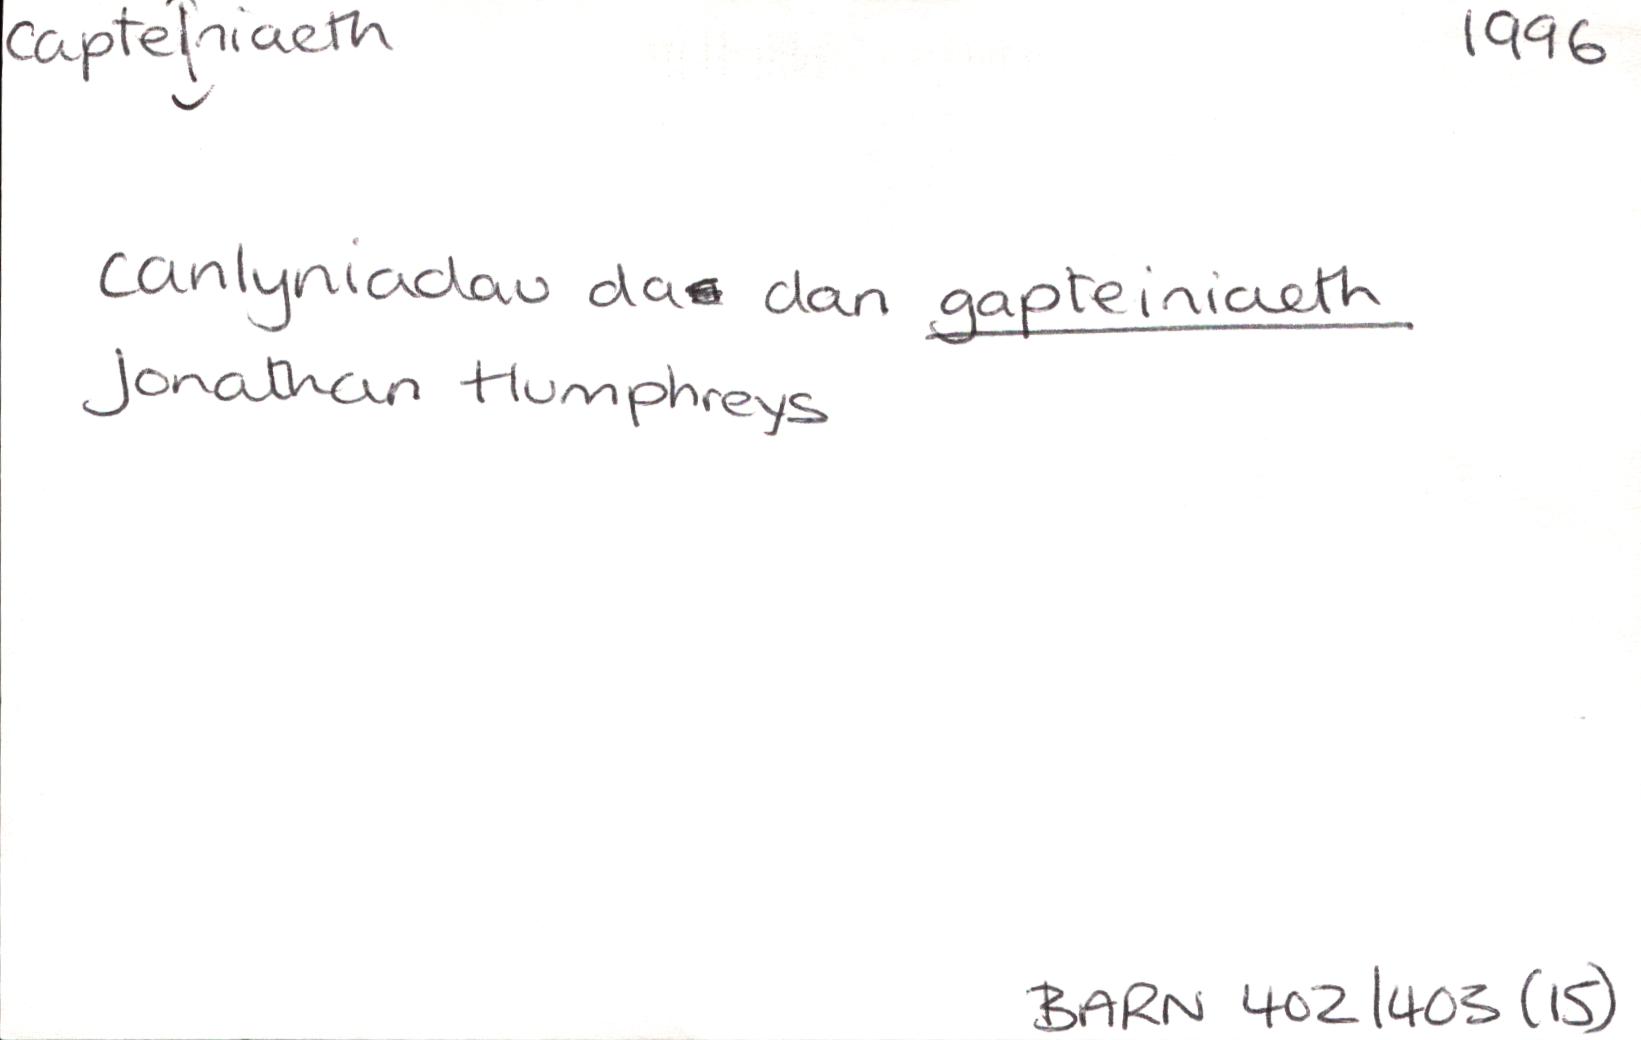 capteiniaeth 1996
canlyniadau da dan gapteiniaeth
Jonathan Humphreys
BARN 402/403 (15)